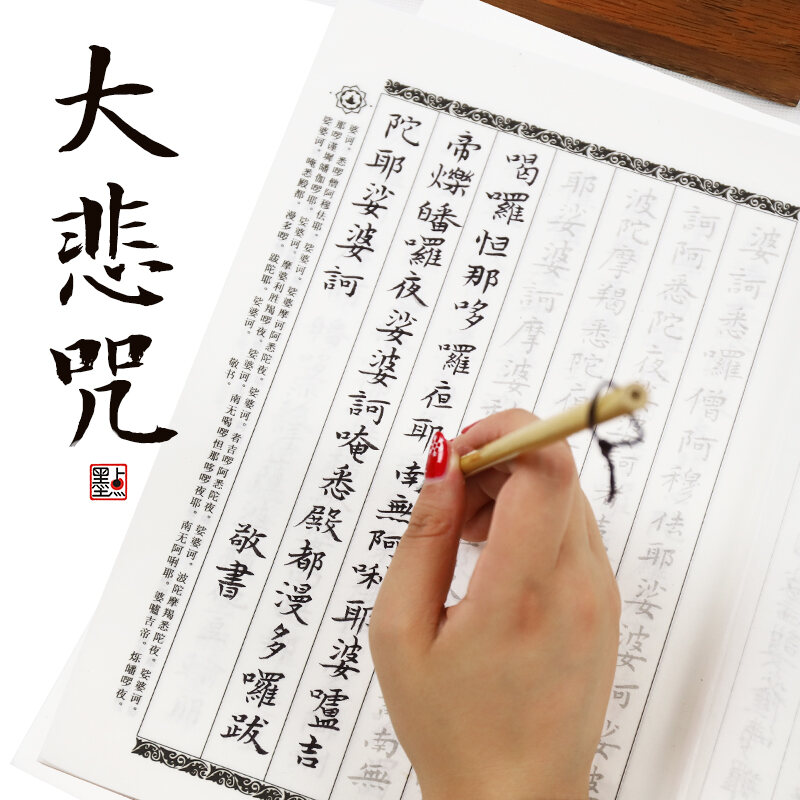 大悲咒
墨点
婆訶悉囉僧阿穆佉耶娑婆訶娑婆
訶阿悉陀夜
波陀摩羯悉陀夜
耶娑婆訶摩婆
喝囉怛那哆囉夜耶南無阿唎耶婆嚧吉
帝爍皤囉夜娑婆訶唵悉殿都漫多囉跋
陀耶娑婆訶
敬書
婆诃。悉啰僧阿穆佉耶。娑婆诃。娑婆摩诃阿悉陀夜。娑婆诃。者吉啰阿悉陀夜。娑婆诃。波陀摩羯悉陀夜。娑婆诃。
那啰谨墀皤伽啰耶。娑婆诃。摩婆利胜羯啰夜。娑婆诃。南无喝啰怛那哆啰夜耶。南无阿唎耶。婆嚧吉帝。烁皤啰夜。
娑婆诃。唵悉殿都。漫多啰。跋陀耶。娑婆诃。敬书。